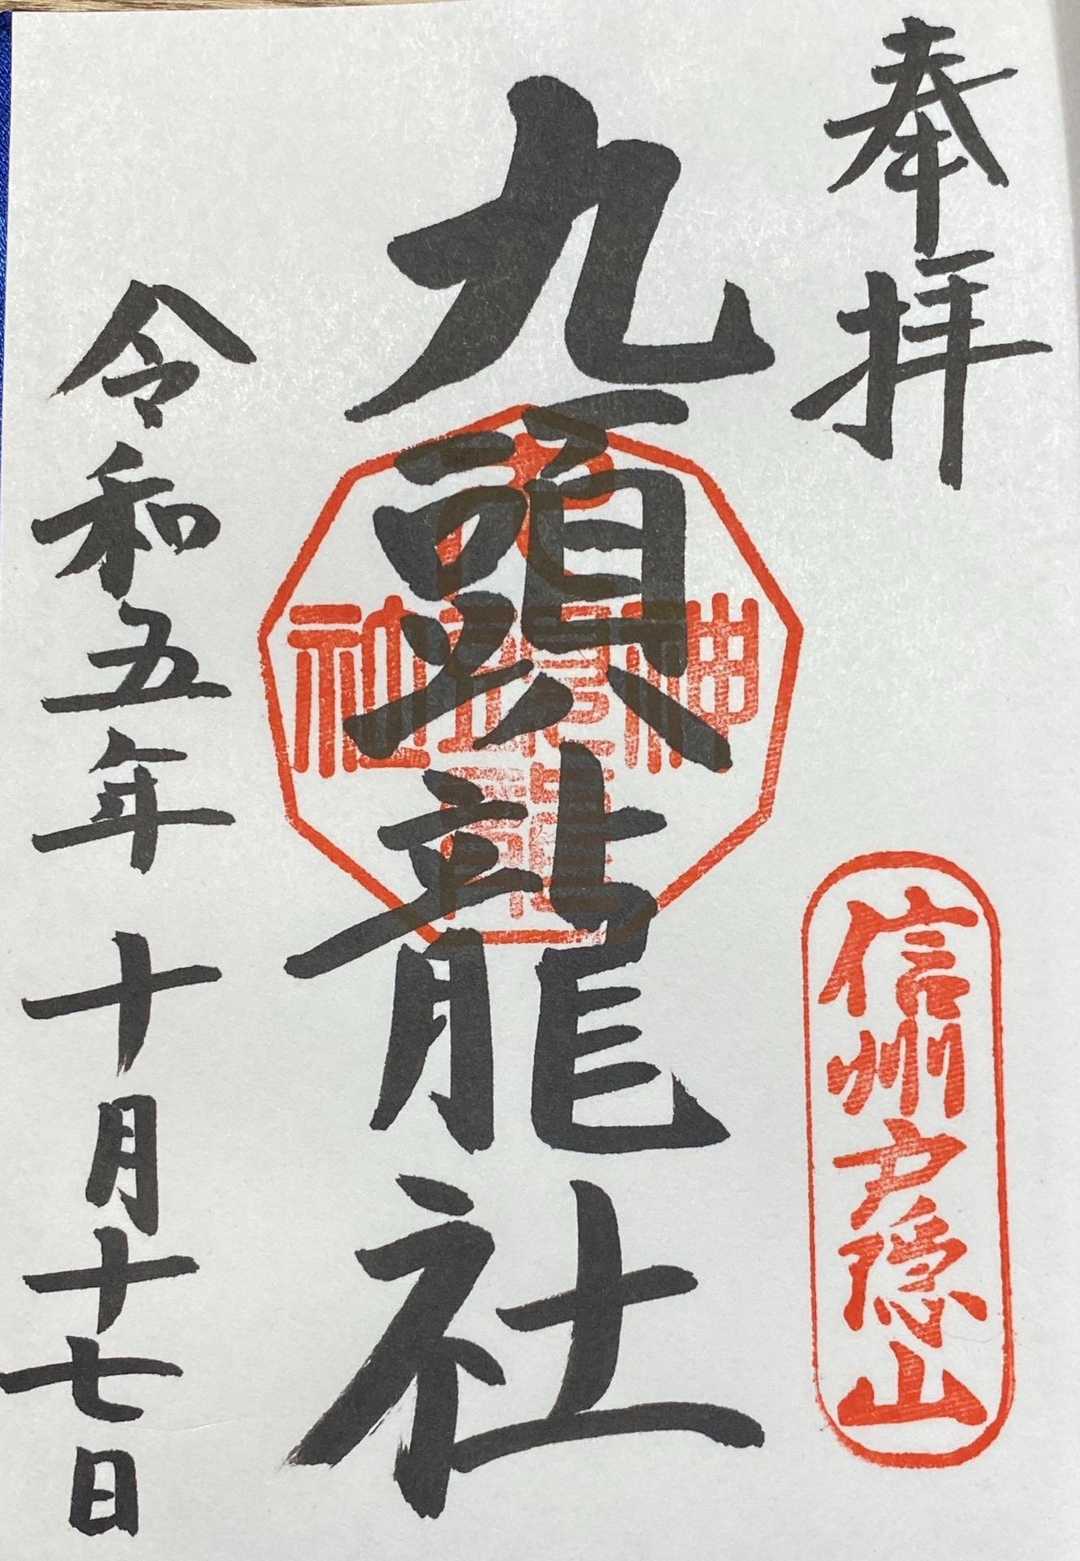 奉拝
信州戸隠山
九頭龍社
令和五年十月十七日